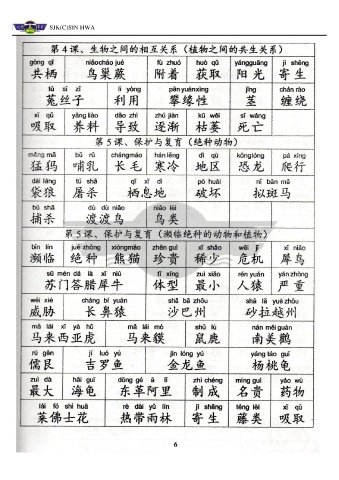 SJK(C)SIN HWA
第4课、生物之间的相互关系（植物之间的共生关系）
gòng qī niǎocháo jué fù zhuó huò qǔ yángguāng jì shēng
共栖 鸟巢蕨 附着 获取 阳光 寄生
tù sī zǐ lì yòng pānyuánxìng jīng chán rào
菟丝子 利用 攀缘性 茎 缠绕
xī qǔ yǎng liào dǎo zhì zhú jiàn kū wěi sǐ wáng
吸取 养料 导致 逐渐 枯萎 死亡
第5课、保护与复育（绝种动物）
měng mǎ bǔ rǔ chángmáo hán lěng dì qū kǒnglóng pá xíng
猛犸 哺乳 长毛 寒冷 地区 恐龙 爬行
dài láng tú shā qī xī dì pò huài nǐ bān mǎ
袋狼 屠杀 栖息地 破坏 拟斑马
bǔ shā dù dù niǎo niǎo lèi
捕杀 渡渡鸟 鸟类
第5课、保护与复育（濒临绝种的动物和植物）
bīn lín jué zhǒng xióngmāo zhēn guì xī shǎo wēi jī xī niǎo
濒临 绝种 熊猫 珍贵 稀少 危机 犀鸟
sū mén dá là xī niú tǐ xíng zuì xiǎo rén yuán yán zhòng
苏门答腊犀牛 体型 最小 人猿 严重
wēi xié cháng bí yuán shā bā zhōu shā lā yuè zhōu
威胁 长鼻猿 沙巴州 砂拉越州
mǎ lái xī yà hǔ mǎ lái mò shǔ lù nán měi guàn
马来西亚虎 马来貘 鼠鹿 南美鹳
rú gèn jí luó yú jīn lóng yú yáng táo guī
儒艮 吉罗鱼 金龙鱼 杨桃龟
zuì dà hǎi guī dōng gé ā lǐ zhì chéng míng guì yào wù
最大 海龟 东革阿里 制成 名贵 药物
lái fó shì huā rè dài yǔ lín jì shēng téng lèi xī qǔ
莱佛士花 热带雨林 寄生 藤类 吸取
6